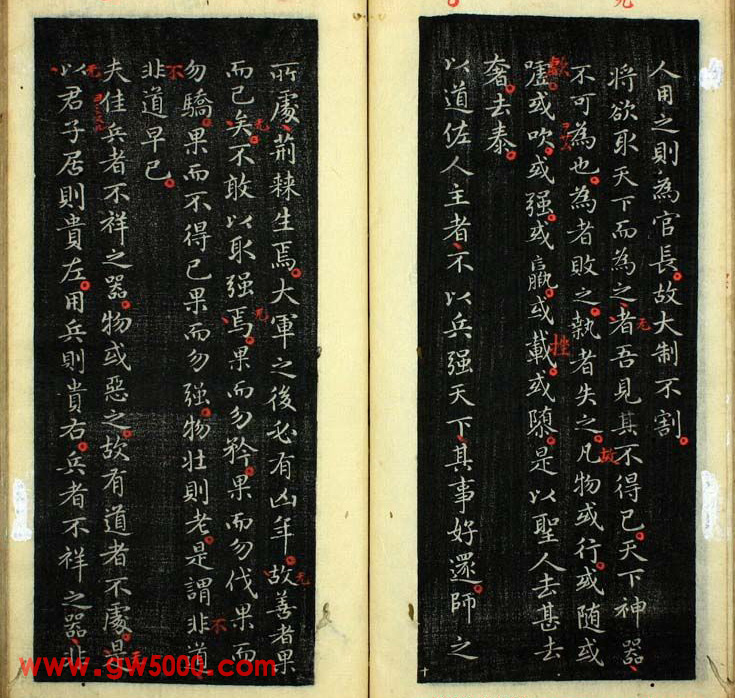 人用之則為官長故大制不割
將欲取天下而為之者吾見其不得已天下神器
不可為也為者敗之執者失之凡物或行或隨或
噓或吹或强或羸或載或隳是以聖人去甚去
奢去泰
以道佐人主者不以兵强天下其事好還師之
无
故
挫
所處荊棘生焉大軍之後必有凶年故善者果
而已矣不敢以取强焉果而勿矜果而勿伐果而
勿驕果而不得已果而勿强物壯則老是謂非道
非道早已
夫佳兵者不祥之器物或惡之故有道者不處是
以君子居則貴左用兵則貴右兵者不祥之器非
无
无
无
不
不
无
www.gw5000.com